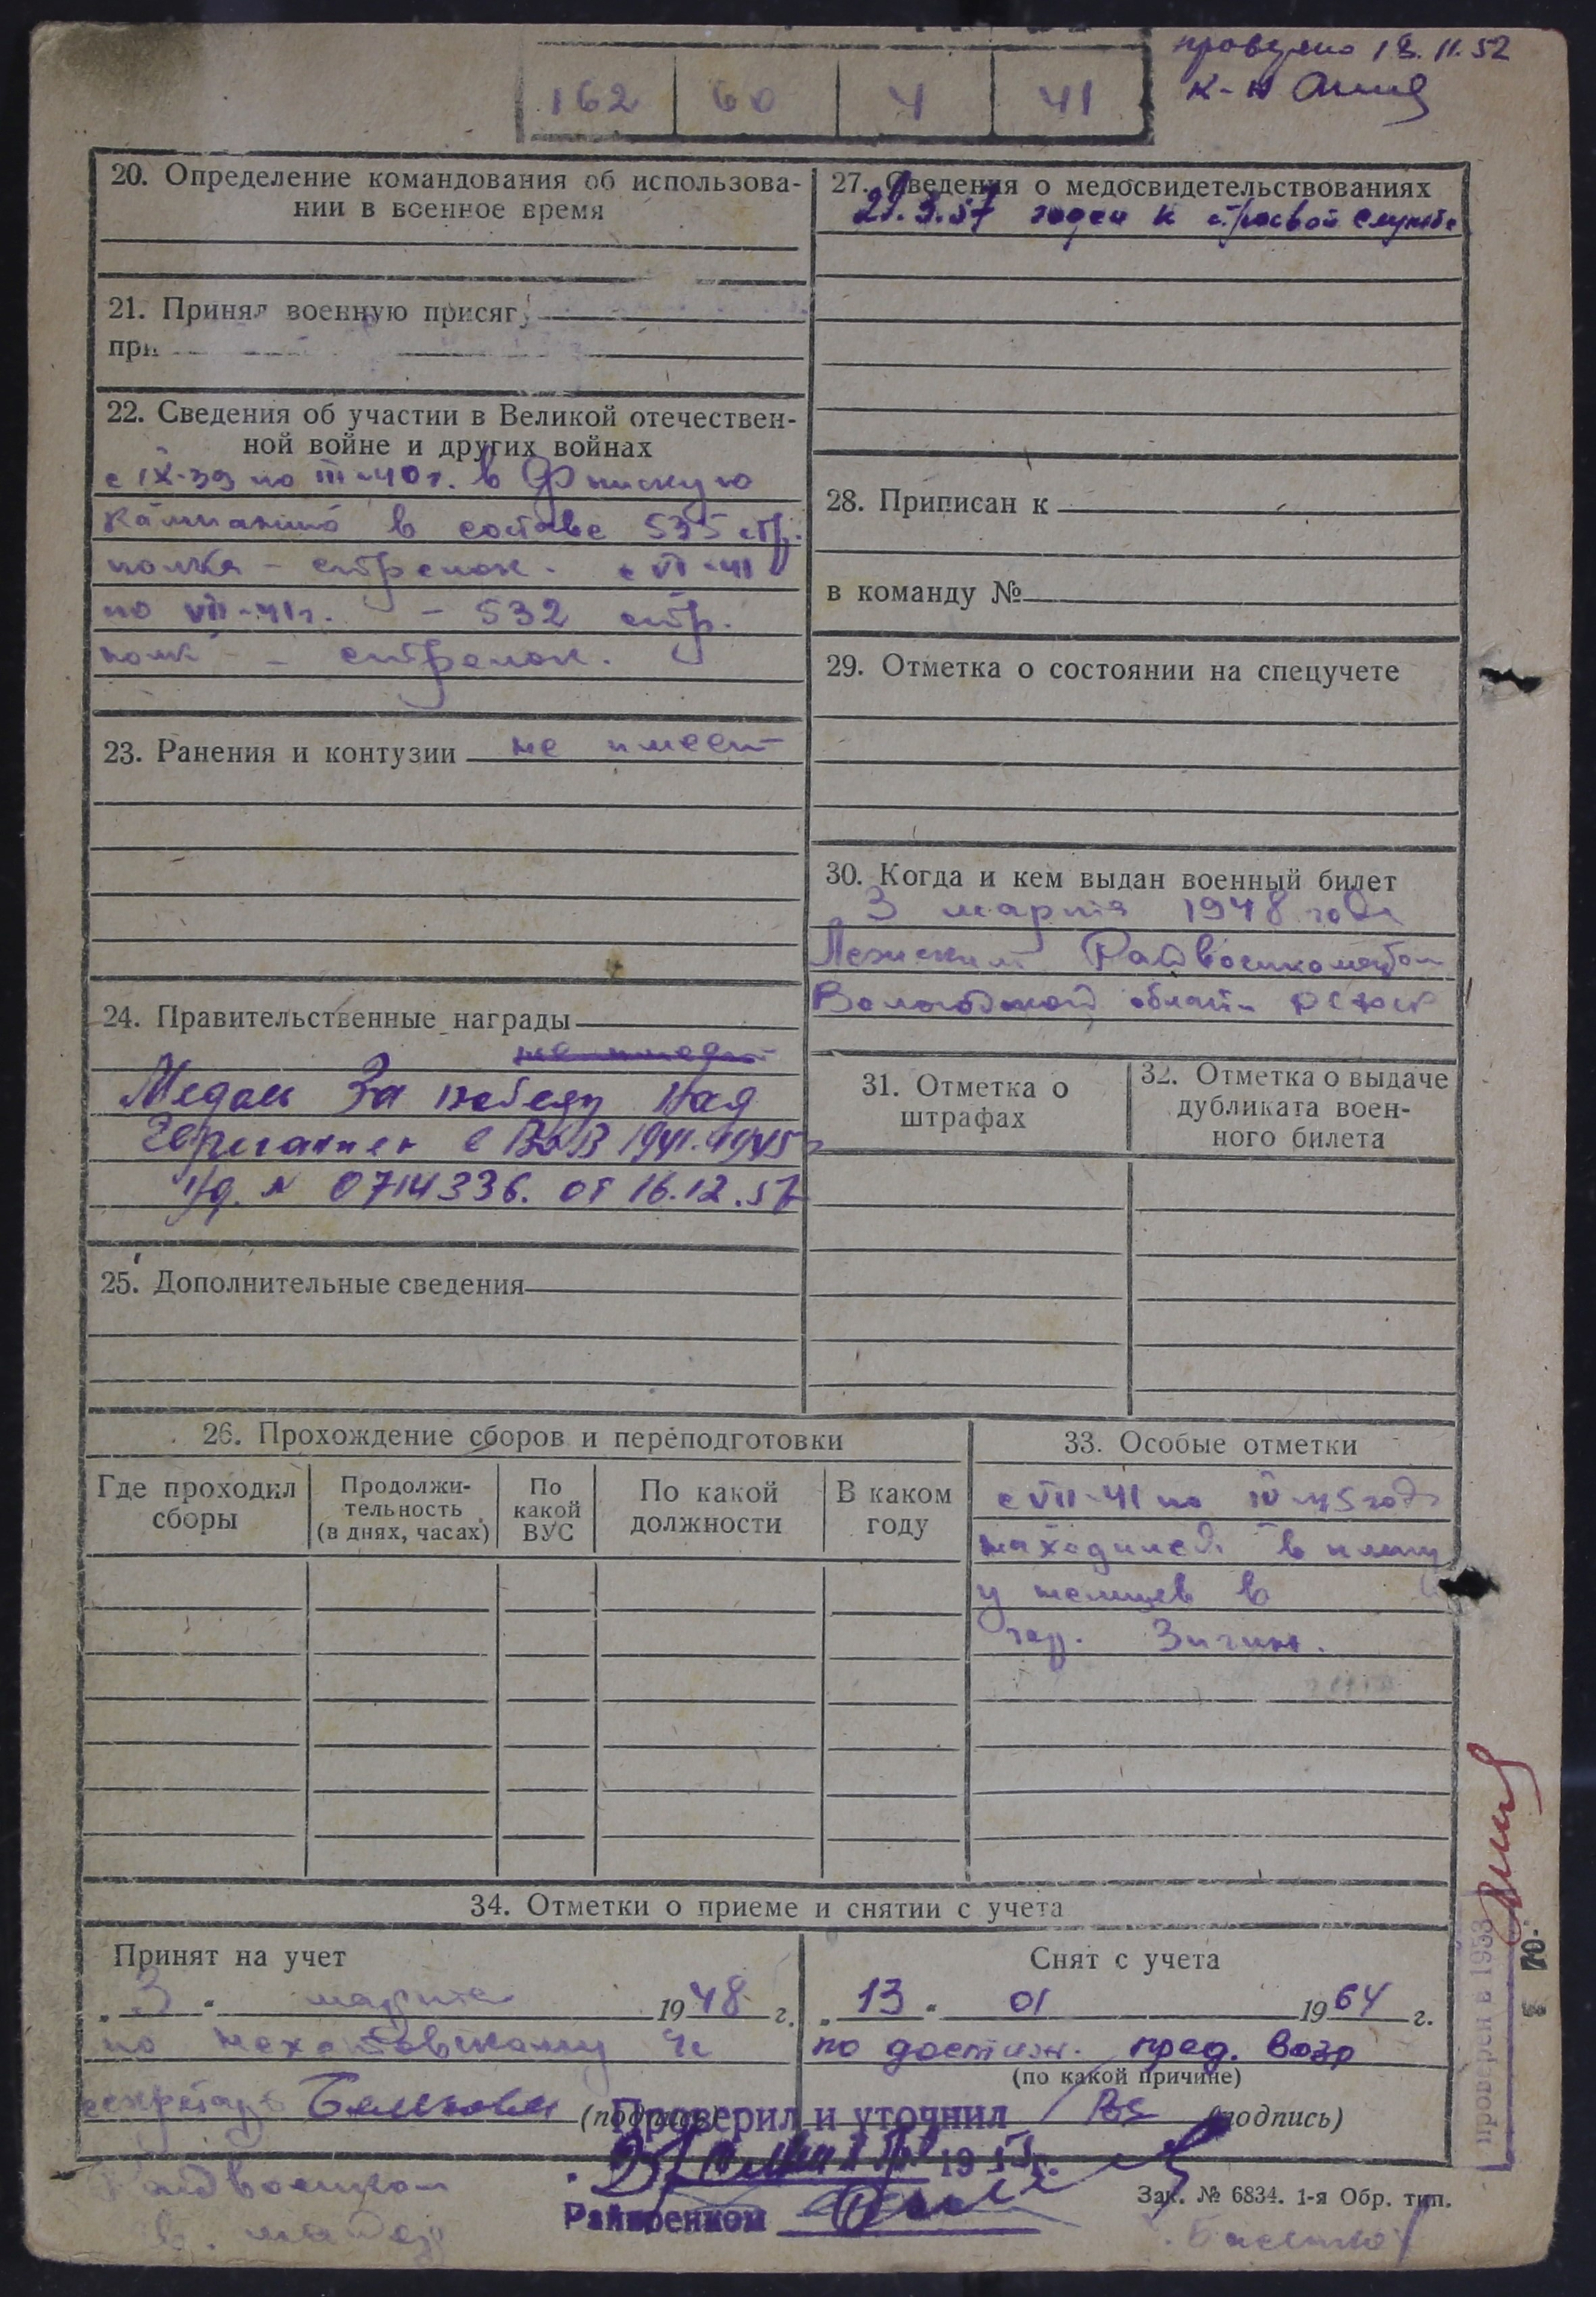 проверено 18.11.52
к-н
162 60 4 41
20. Определение командования об использова-
нии в военное время
21. Принял военную присягу
при
22. Сведения об участии в Великой отечествен-
ной войне и других войнах
с IX-39 по III-40 г. в Финскую
кампанию в составе 535 стр.
полка - стрелок. с VI-41
по VII-41 г. - 532 стр.
полк - стрелок.
23. Ранения и контузии не имеет
24. Правительственные награды
не имеет
Медаль За победу над
Германией в ВОВ 1941-1945
уд. № 0714336. от 16.12.57
25. Дополнительные сведения
27. Сведения о медосвидетельствованиях
29.3.57 годен к строевой службе
28. Приписан к
в команду №
29. Отметка о состоянии на спецучете
30. Когда и кем выдан военный билет
3 марта 1948 года
Лежским Райвоенкоматом
Вологодской области РСФСР
31. Отметка о
штрафах
32. Отметка о выдаче
дубликата воен-
ного билета
26. Прохождение сборов и переподготовки
Где проходил
сборы
Продолжи-
тельность
(в днях, часах)
По
какой
ВУС
По какой
должности
В каком
году
33. Особые отметки
с VII-41 по IV-45 года
находился в плену
у немцев в
гор. Зиген.
34. Отметки о приеме и снятии с учета
Принят на учет
„ 3 " марта 1948 г.
по
секретарь (подпись)
Снят с учета
„ 13 " 01 1964 г.
по достиж. пред. возр
(по какой причине)
(подпись)
Проверил и уточнил
Райвоенком
Райвоенком
Зак. № 6834. 1-я Обр. тип.
проверен в 1953